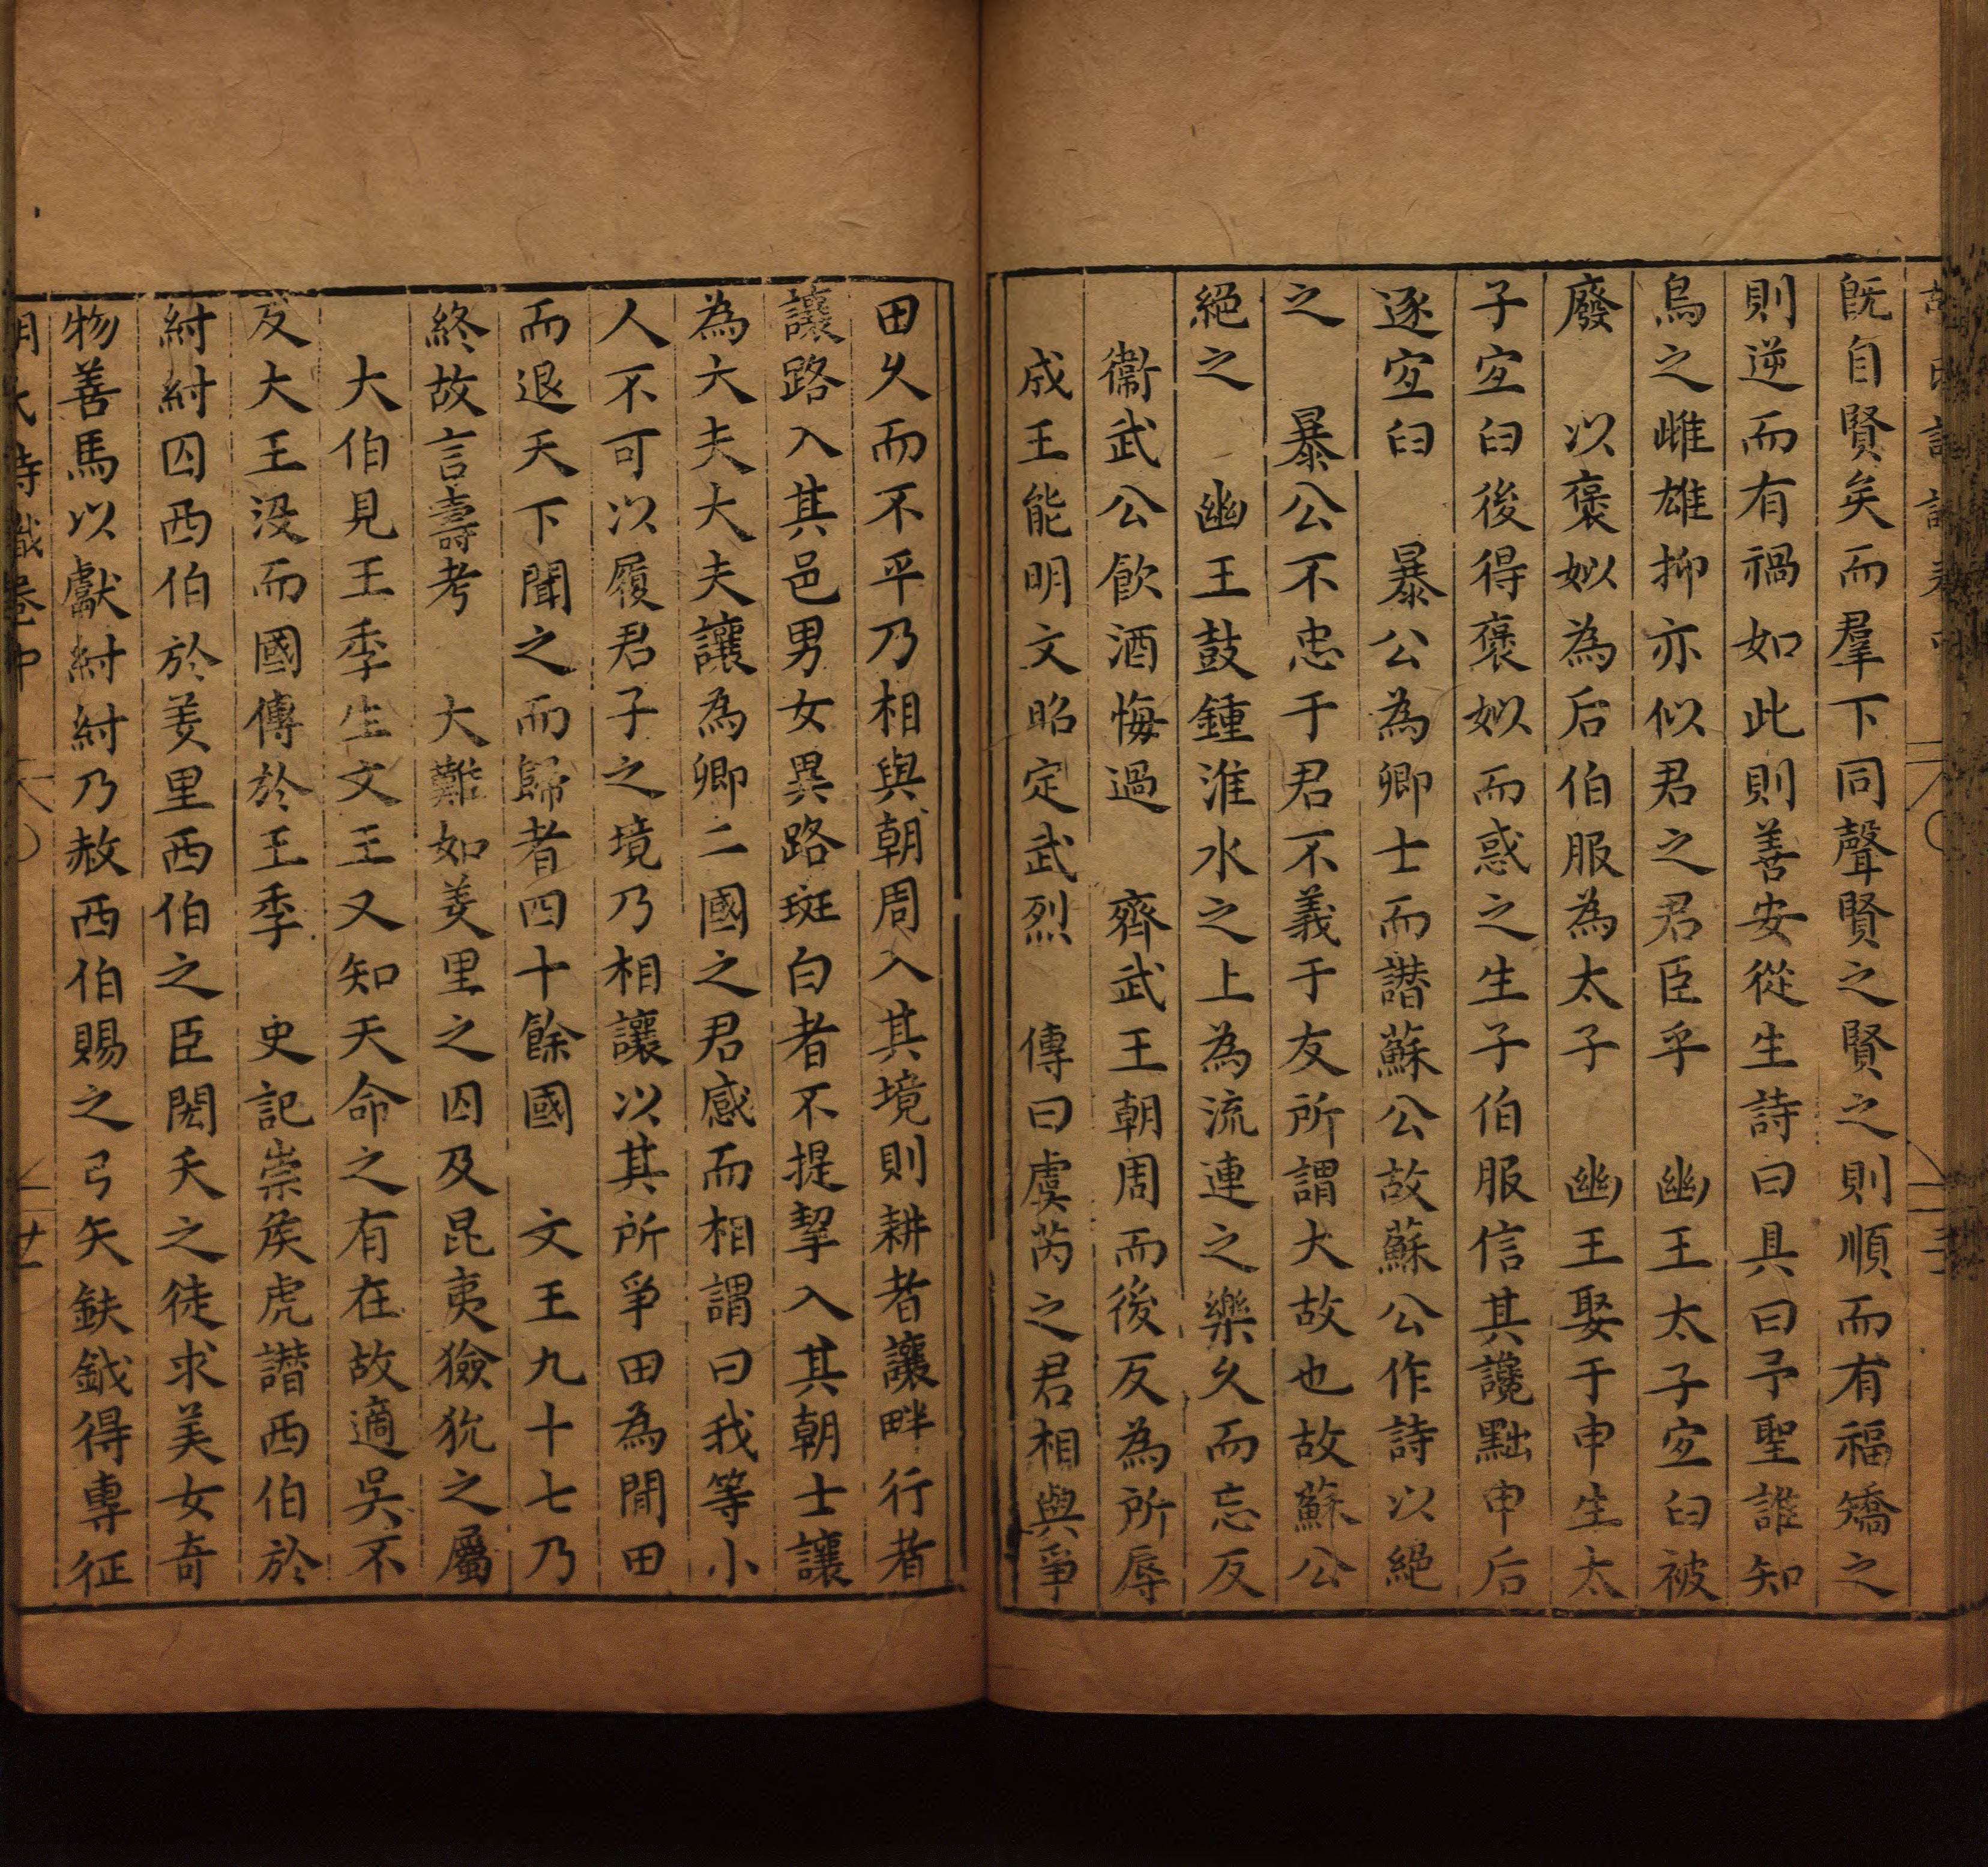 既自賢矣而羣下同聲賢之賢之則順而有福矯之
則逆而有禍如此則善安從生詩曰具曰予聖誰知
烏之雌雄抑亦似君之君臣乎　幽王太子宜臼被
廢　以褒姒為后伯服為太子　幽王娶于申生太
子宜臼後得褒姒而惑之生子伯服信其讒黜申后
逐宜臼　暴公為卿士而譖蘇公故蘇公作詩以絕
之　暴公不忠于君不義于友所謂大故也故蘇公
絕之　幽王鼓鍾淮水之上為流連之樂久而忘反
衞武公飲酒悔過　齊武王朝周而後反為所辱
成王能明文昭定武烈　傳曰虞芮之君相與爭
田久而不平乃相與朝周入其境則耕者讓畔行者
讓路入其邑男女異路斑白者不提挈入其朝士讓
為大夫大夫讓為卿二國之君感而相謂曰我等小
人不可以履君子之境乃相讓以其所爭田為閒田
而退天下聞之而歸者四十餘國　文王九十七乃
終故言壽考　大難如羑里之囚及昆夷獫狁之屬
大伯見王季生文王又知天命之有在故適吳不
反大王沒而國傳於王季　史記崇矦虎譖西伯於
紂紂囚西伯於羑里西伯之臣閎夭之徒求美女奇
物善馬以獻紂紂乃赦西伯賜之弓矢鈇鉞得專征